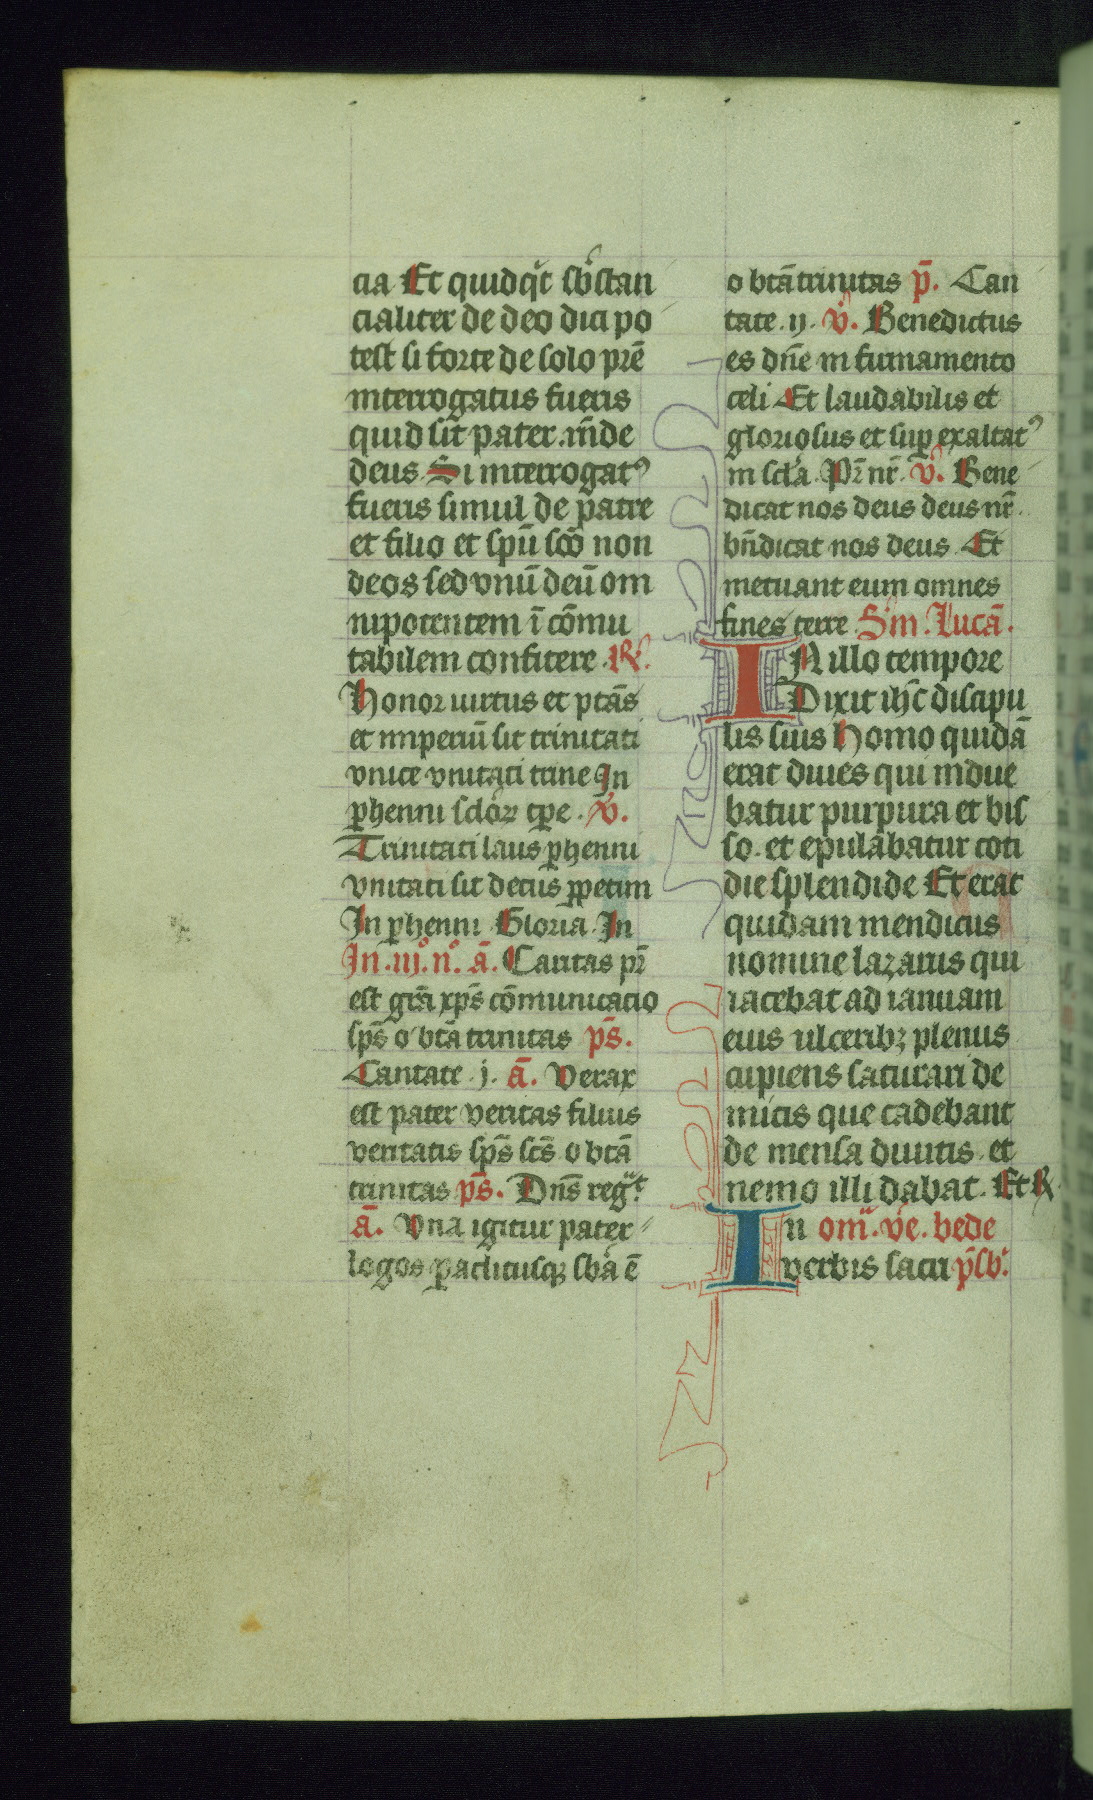 cia Et quidq̇t sb̓stan
cialiter de deo dici po
test si forte de solo pr̄e
interrogatus fueris
quid sit pater. in̄de
deus. Si interrogatꝰ
fueris simul de patre
et filio et spū sc̄o non
deos sed vnū deū om
nipotentem ī cōmu
tabilem confitere. ℟.
Honor uirtus et ptās
et imperiū sit trinitati
vnice vnitati trine In
ꝑhenni sclōꝝ tꝑe. v̓.
Trinitati laus ꝑhenni
vnitati sit decus ꝑpetim
In ꝑhenni Gloria In
In .iij. nͦ. ā. Caritas pr̄
est grā xp̄s cōmunicatio
sp̄s o btā trinitas ps̄.
Cantate .j. ā. Verax
est pater veritas filius
veritatis sp̄s sc̄s o btā
trinitas ps̄. Dn̄s reg.t
ā. Vna igitur pater
logos ꝑaclitusqꝫ sb̓a ē
o btā trinitas p̄. Can
tate .ij. v̓. Benedictus
es dn̄e in firmamento
celi Et laudabilis et
gloriosus et suꝑ exaltatꝰ
in scl̓a. Pr̄ nr̄. v̓. Bene
dicat nos deus deus nr̄.
bn̄dicat nos deus Et
metuant eum omnes
fines terre. Sm̓. Lucā.
IN illo tempore
Dixit ih̄c discipu
lis suis Homo quidā
erat diues qui indue
batur purpura et bis
so. et epulabatur coti
die splendide Et erat
quidam mendicus
nomine lazarus qui
iacebat ad ianuam
eius ulceribꝫ plenus
cupiens saturari de
micis que cadebant
de mensa diuitis. et
nemo illi dabat. Et ℟
In om̄. ve. bede
verbis sacri p̄sb̓.